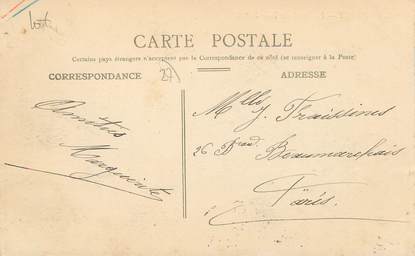 CARTE POSTALE
Certains pays étrangers n'acceptent pas la Correspondance de ce côté (se renseigner à la Poste)
CORRESPONDANCE
27
ADRESSE
Amitiés
Marguerite
Mlle J. Fraissines
26 Bd Beaumarchais
Paris.